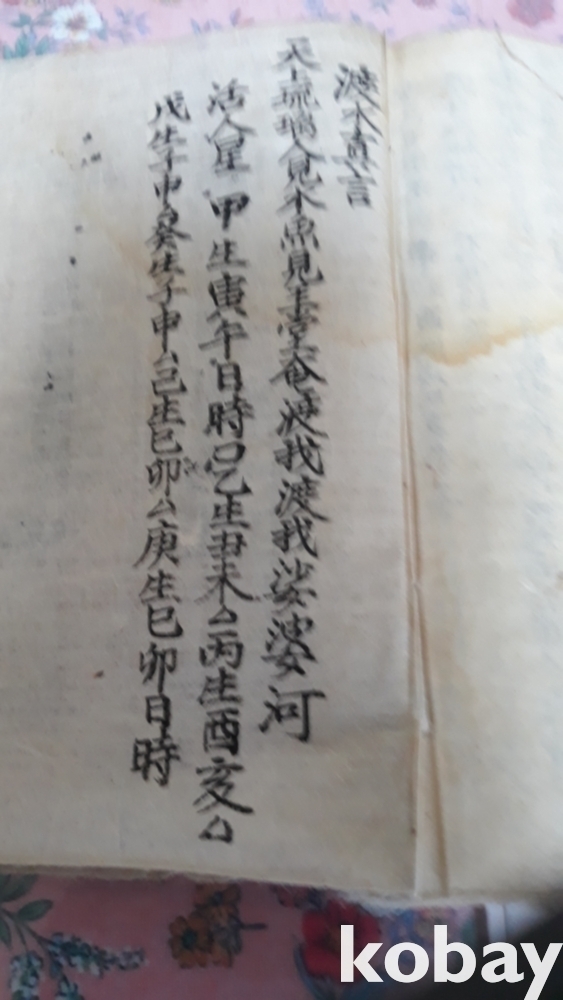 渡水真言
天上琉璃會見水魚見主堂爸渡我渡我娑婆河
活人星 甲生寅午日時 乙生丑未厶丙生酉亥厶
戊生子申厶癸生子申厶己生巳卯厶庚生巳卯日時
kobay